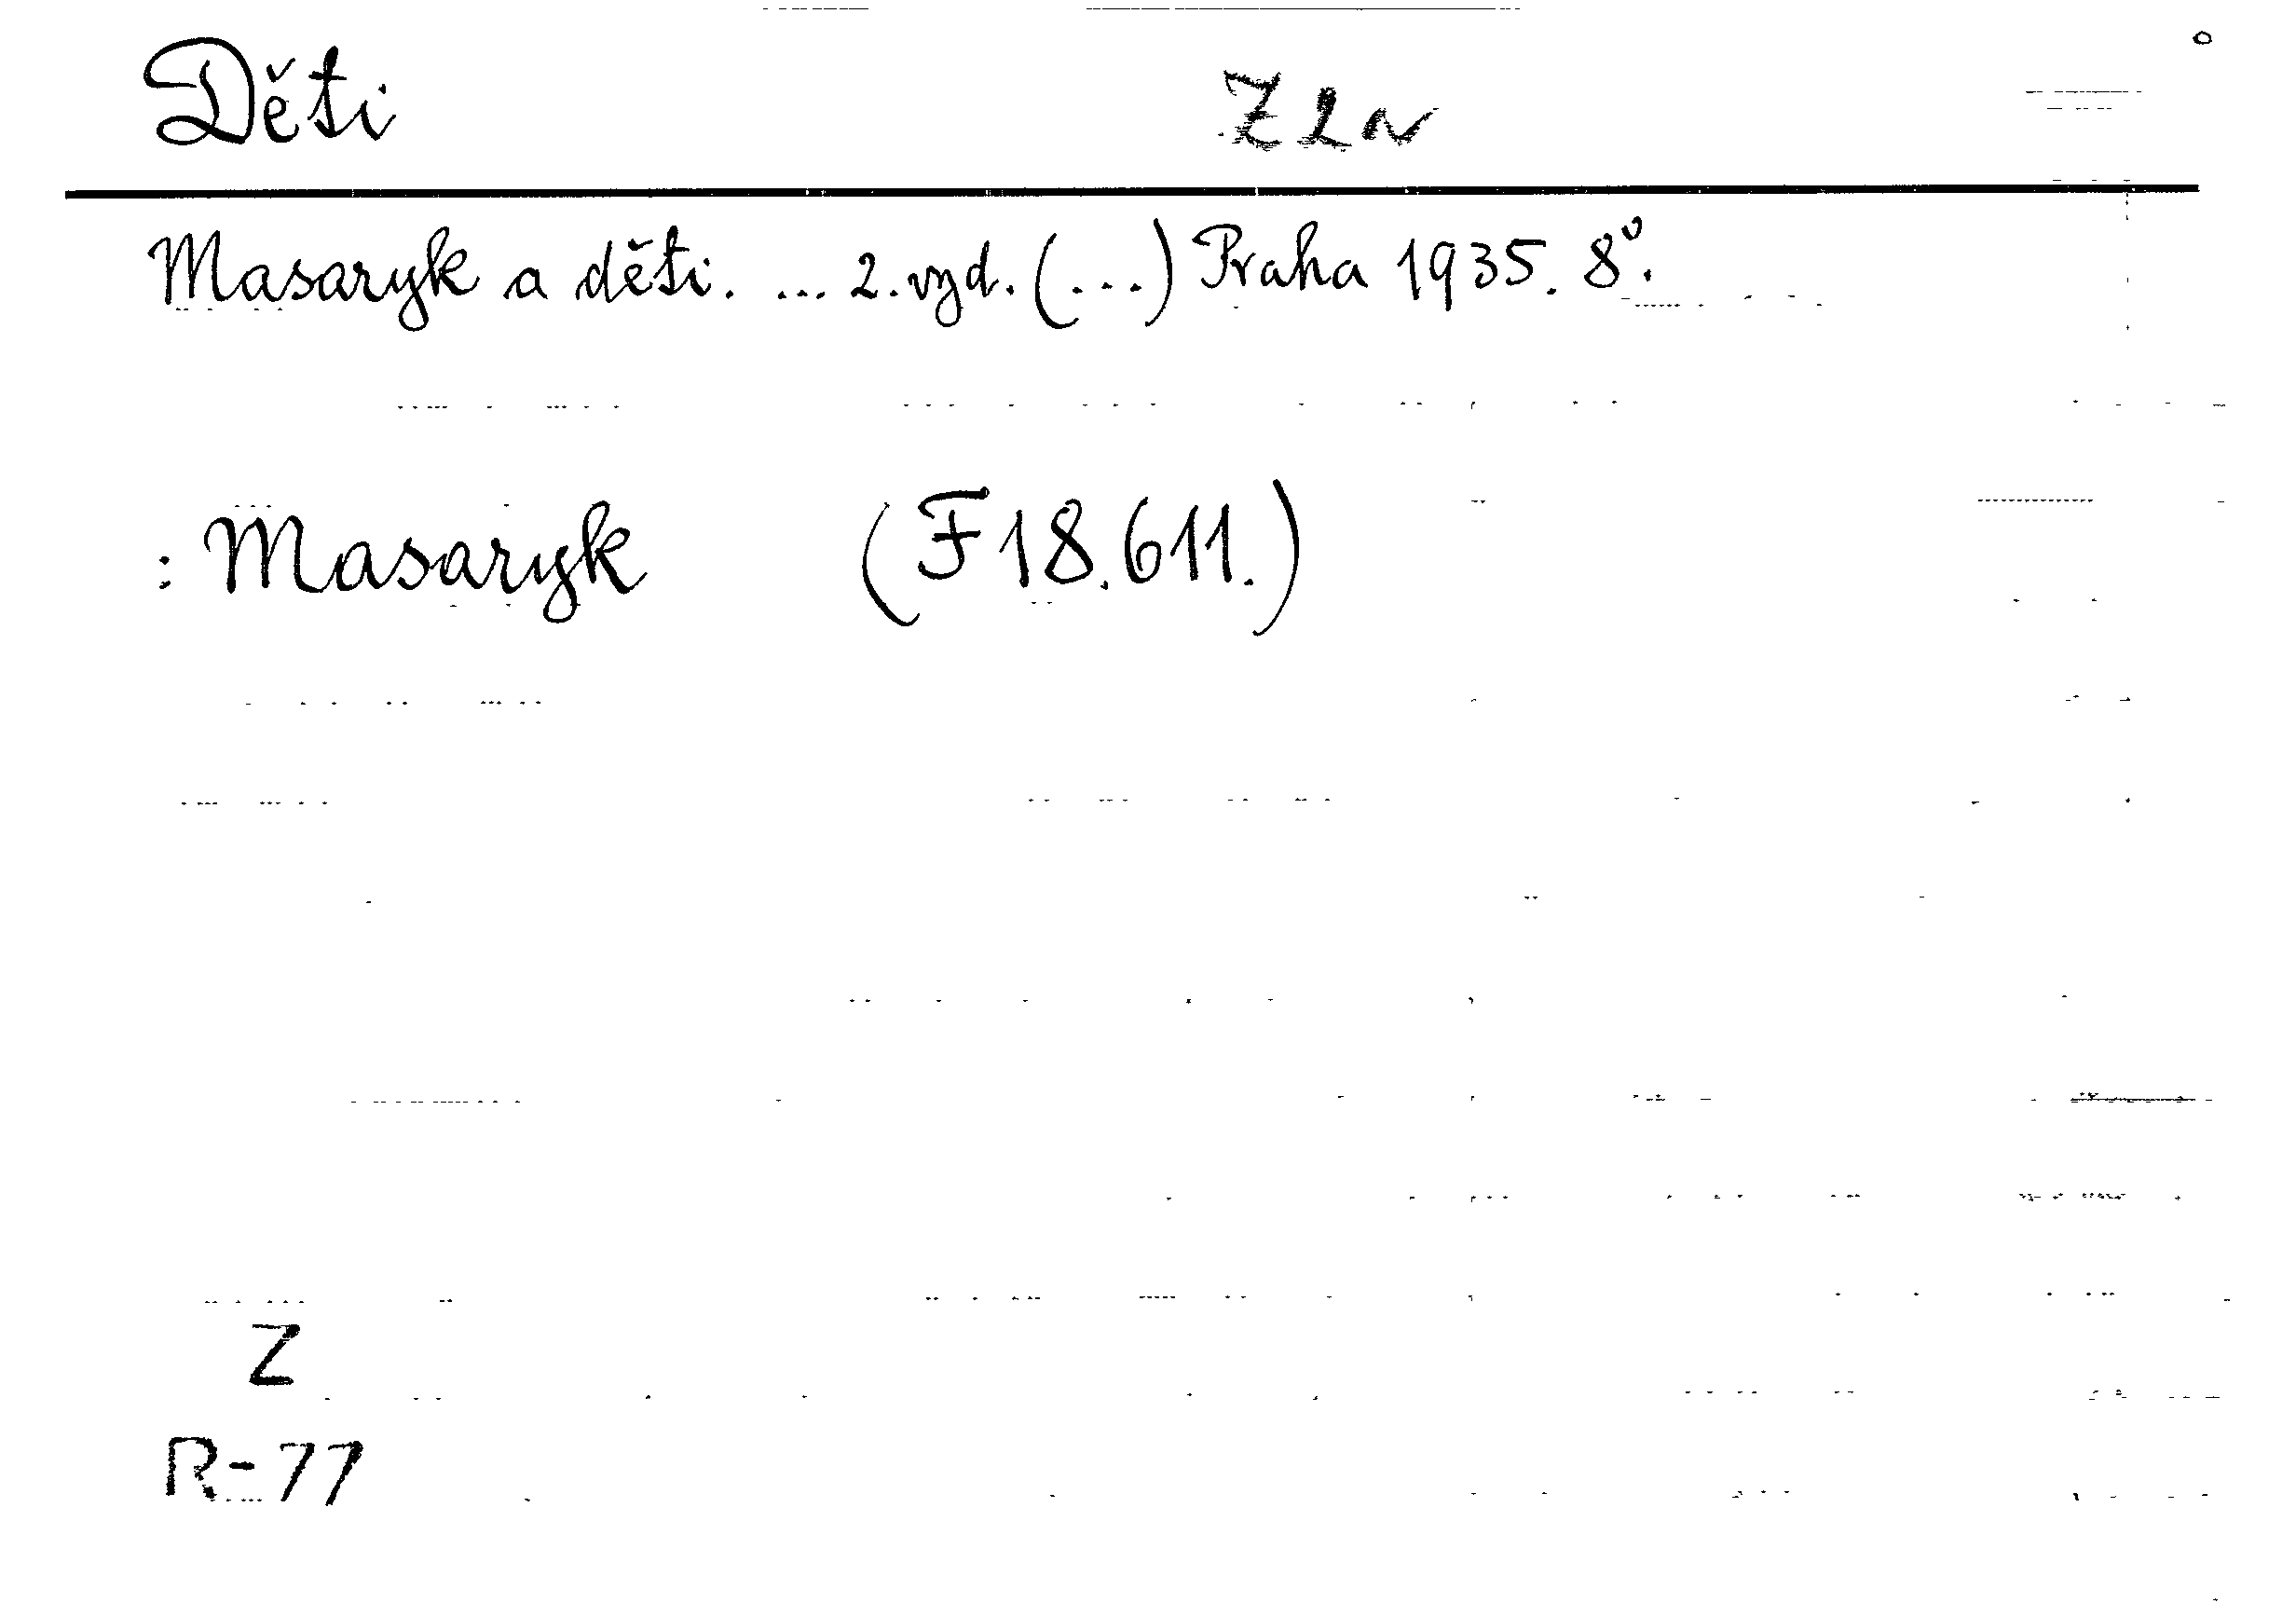 Děti
Masaryk a děti. ... 2. vyd. (...) Praha 1935. 8°.
: Masaryk (F 18.611.)
Z
R-77